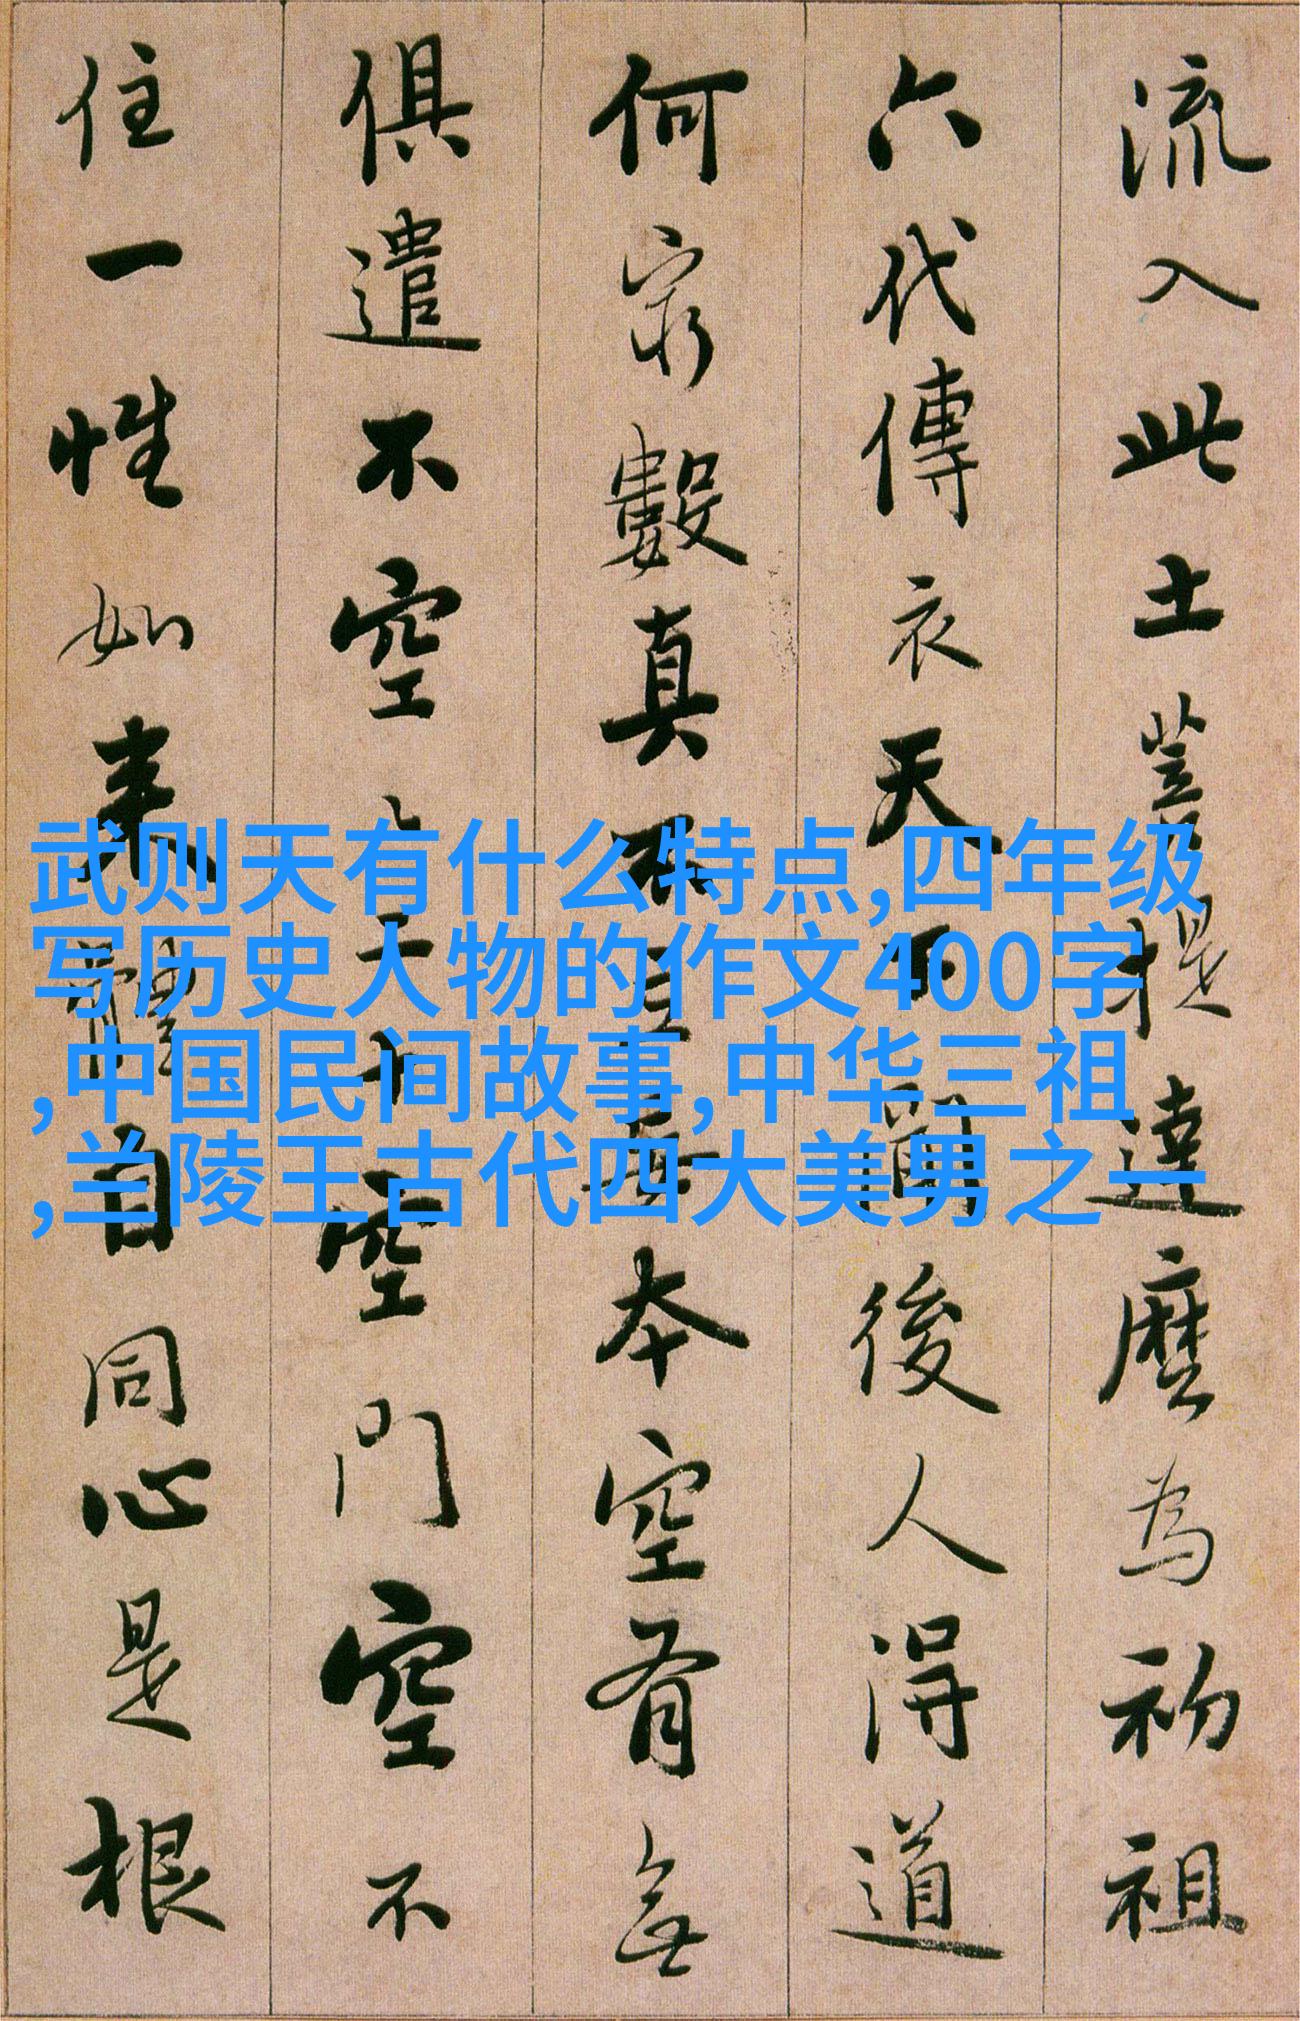 流入此土菩提達磨為初祖
六代傳衣天下聞後人得道
何窮數真不立妄本空有無
俱遣不空々二十空門空不
住一性如来體自同心是根
武则天有什么特点,四年级
写历史人物的作文400字
,中国民间故事,中华三祖
,兰陵王古代四大美男之一